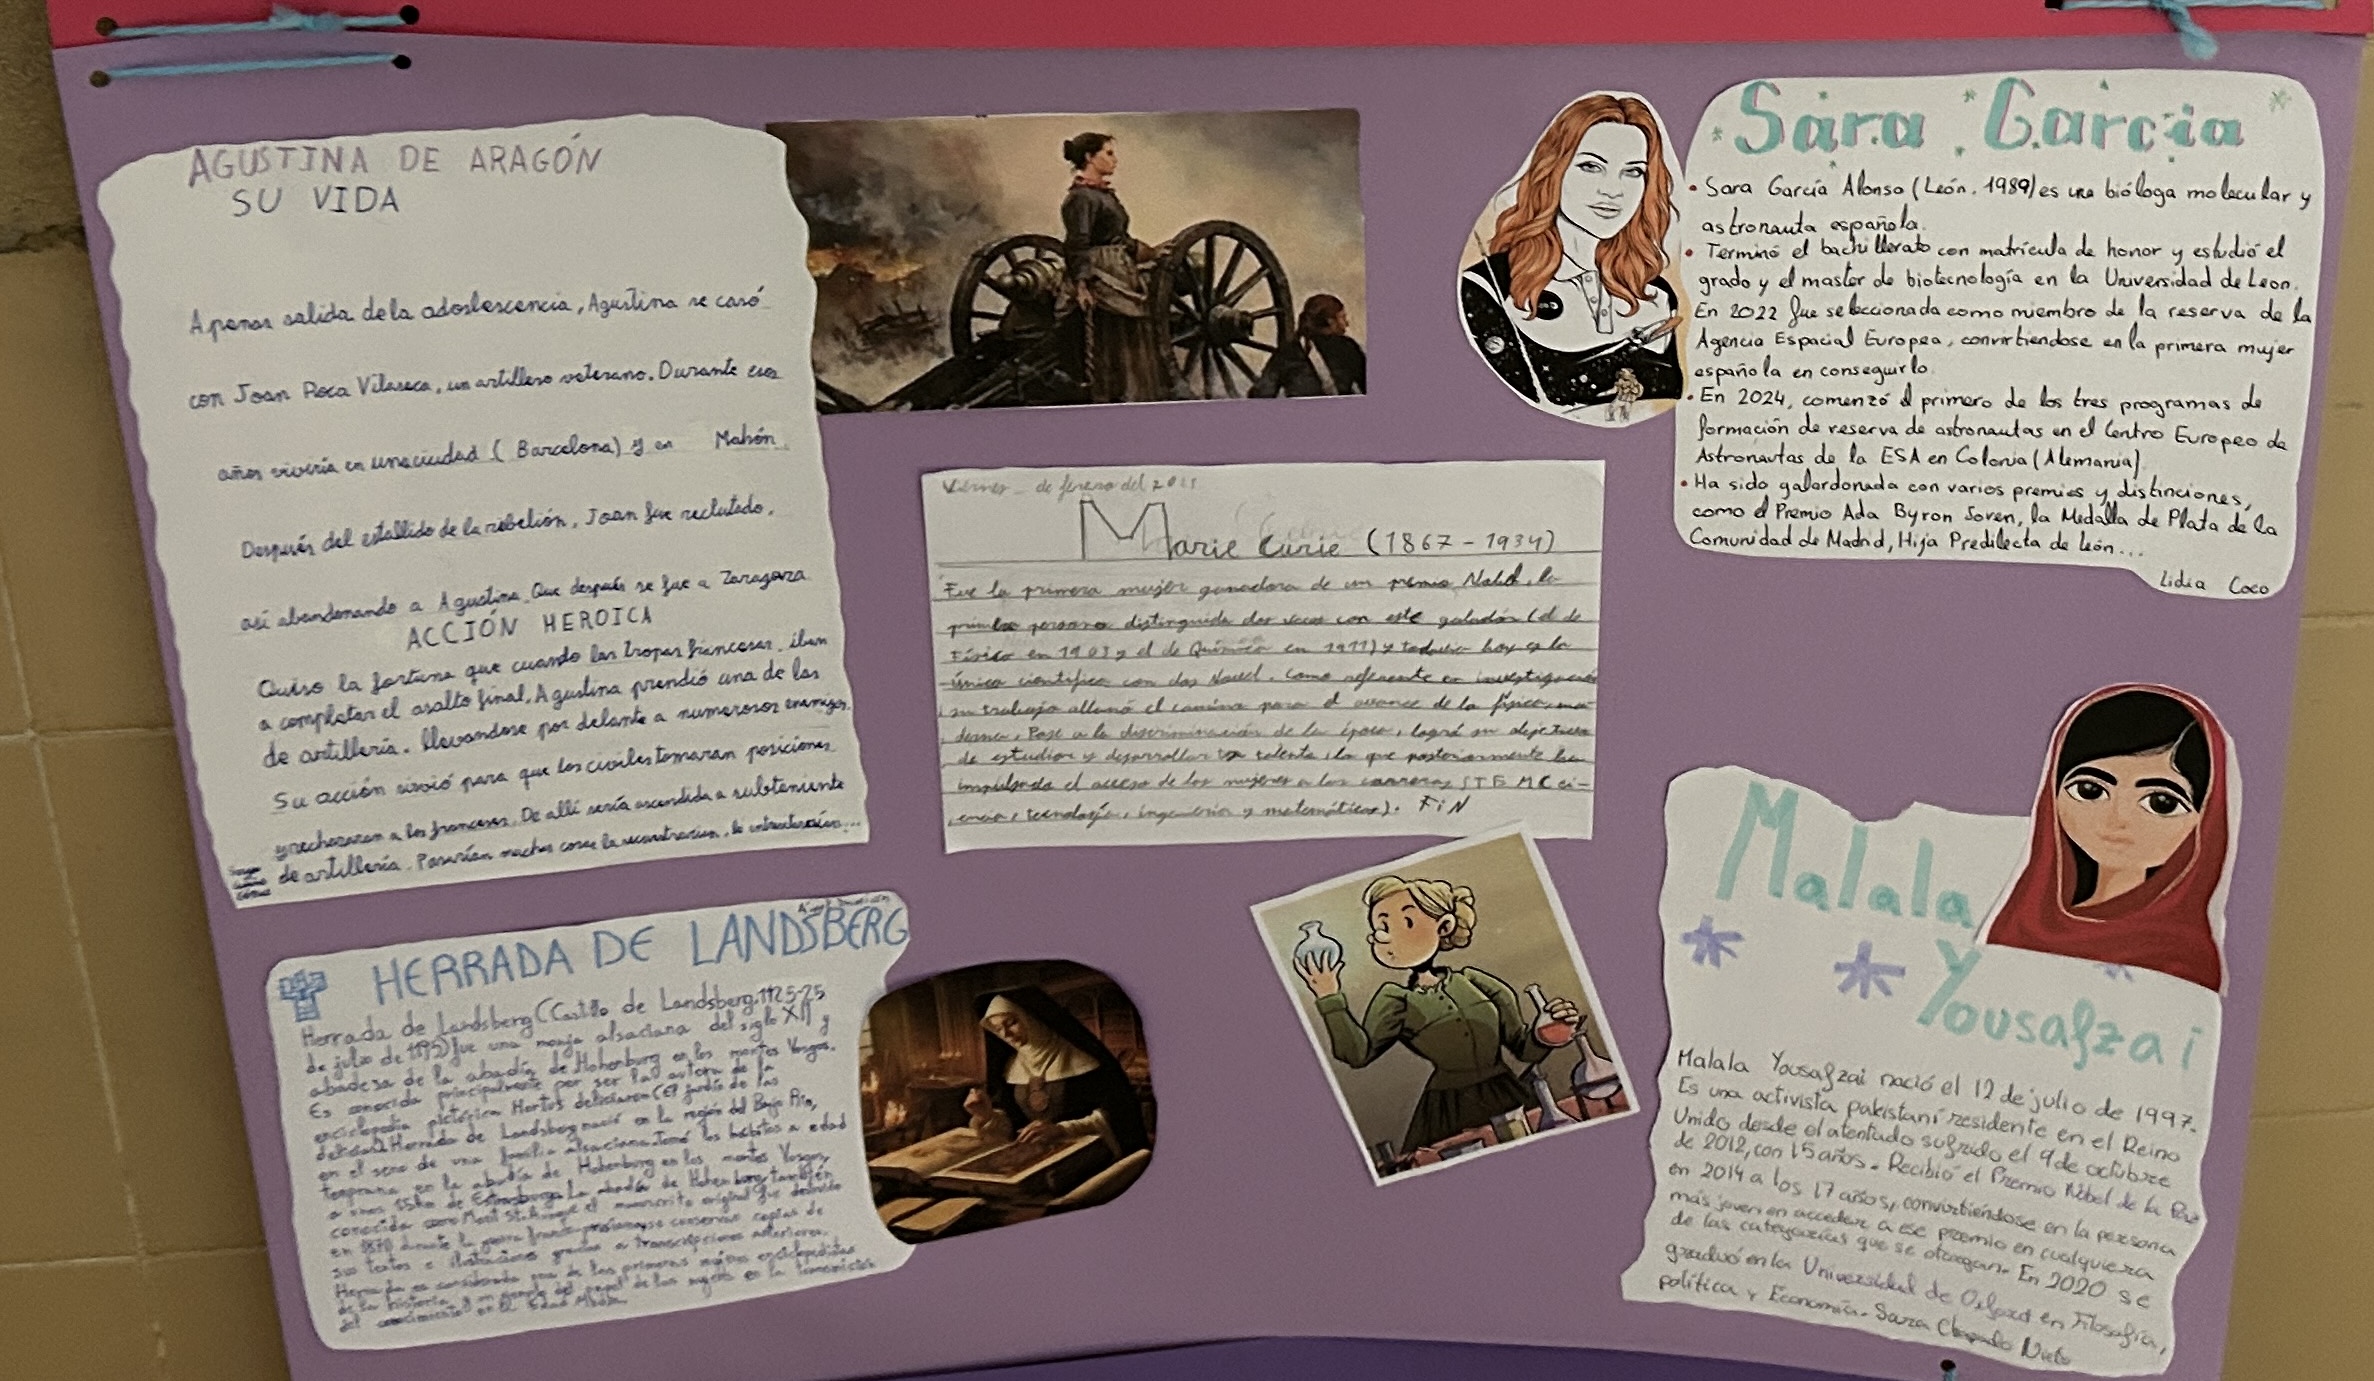 AGUSTINA DE ARAGÓN
SU VIDA
Apenas salida de la adoslescencia, Agustina se casó
con Joan Roca Vilaseca, un artillero veterano. Durante esos
años viviría en una ciudad ( Barcelona) y en Mahón
Después del estallido de la rebelión, Joan fue reclutado,
así abandonando a Agustina. Que después se fue a Zaragoza
ACCIÓN HEROICA
Quiso la fortuna que cuando las tropas francesas, iban
a completar el asalto final, Agustina prendió una de las
de artillería. llevandose por delante a numerosos enemigos.
Su acción sirvió para que los civiles tomaran posiciones
y rechazaran a los franceses. De allí sería ascendida a subteniente
de artillería. Pasarían muchas cosas la
Marie Curie (1867-1934)
Fue la primera mujer ganadora de un premio Nobel, la
primera persona distinguida dos veces con este galadón (el de
Física en 1903 y el de Química en 1911) y todavía hoy es la
única científica con dos Nobel. Como referente en investigación
su trabajo allanó el camino para el avance de la física mo-
derna. Pese a la discriminación de la época, logró su objetivo
de estudiar y desarrollar su talento, lo que posteriormente ha
impulsado el acceso de las mujeres a las carreras STEM (ci-
encia, tecnología, ingeniería y matemáticas). FiN
Sara García
• Sara García Alonso (León, 1989) es una bióloga molecular y
astronauta española.
• Terminó el bachillerato con matrícula de honor y estudió el
grado y el master de biotecnología en la Universidad de Leon.
En 2022 fue seleccionada como miembro de la reserva de la
Agencia Espacial Europea, convirtiendose en la primera mujer
española en conseguirlo.
• En 2024, comenzó el primero de los tres programas de
formación de reserva de astronautas en el Centro Europeo de
Astronautas de la ESA en Colonia (Alemania)
• Ha sido galardonada con varios premios y distinciones,
como el Premio Ada Byron Joven, la Medalla de Plata de la
Comunidad de Madrid, Hija Predilecta de León...
Lidia Coco
HERRADA DE LANDSBERG
Herrada de Landsberg (Castillo de Landsberg, 1125-25
de julio de 1195) fue una monja alsaciana del siglo XII y
abadesa de la abadía de Hohenburg en los montes Vosgos.
Es conocida principalmente por ser la autora de la
enciclopedia pictórica Hortus deliciarum (El jardín de las
delicias). Herrada de Landsberg nació en la región del Bajo Rin,
en el seno de una familia alsaciana. Tomó los hábitos a edad
temprana en la abadía de Hohenburg en los montes Vosgos,
a unos 55km de Estrasburgo. La abadía de Hohenburg también
conocida como Mont St. el manuscrito original fue destruido
en 1870 durante la guerra franco-prusiana, se conservan copias de
sus textos e ilustraciones gracias a transcripciones anteriores.
Herrada es considerada una de las primeras mujeres enciclopedistas
de la historia y un ejemplo del papel de las mujeres en la transmisión
del conocimiento en la Edad Media
Malala
Yousafzai
Malala Yousafzai nació el 12 de julio de 1997.
Es una activista pakistaní residente en el Reino
Unido desde el atentado sufrido el 9 de octubre
de 2012, con 15 años. Recibió el Premio Nobel de la Paz
en 2014 a los 17 años, convirtiéndose en la persona
más joven en acceder a ese premio en cualquiera
de las categorías que se otorgan. En 2020 se
graduó en la Universidad de Oxford en Filosofía,
política y Economía. Sara Nieto